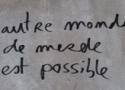 autre monde
de merde
est possible